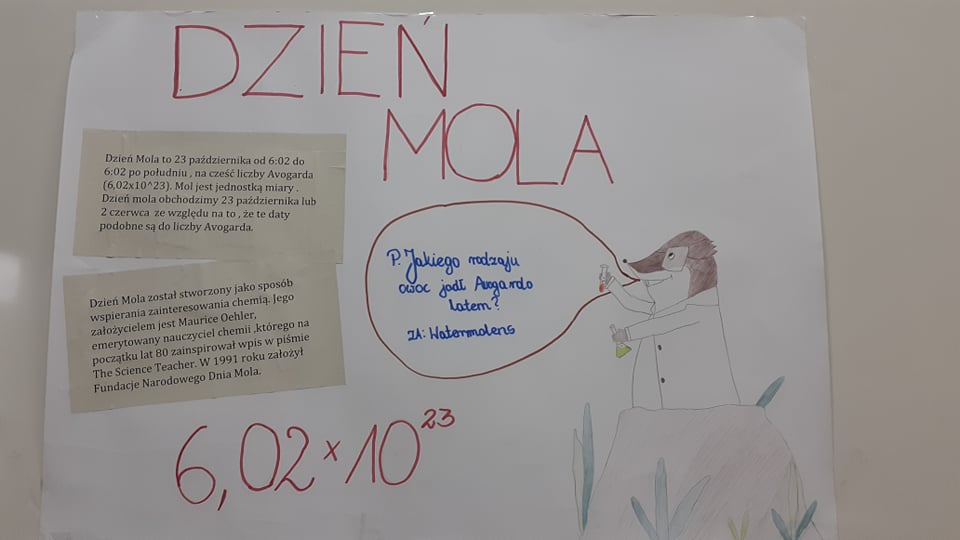 DZIEŃ
MOLA
Dzień Mola to 23 października od 6:02 do
6:02 po południu , na cześć liczby Avogarda
(6,02x10^23). Mol jest jednostką miary .
Dzień mola obchodzimy 23 października lub
2 czerwca ze względu na to , że te daty
podobne są do liczby Avogarda.
Dzień Mola został stworzony jako sposób
wspierania zainteresowania chemią. Jego
założycielem jest Maurice Oehler,
emerytowany nauczyciel chemii ,którego na
początku lat 80 zainspirował wpis w piśmie
The Science Teacher. W 1991 roku założył
Fundacje Narodowego Dnia Mola.
P: Jakiego rodzaju
owoc jadł Avogardo
latem?
Watermolens
6,02 x 10^23